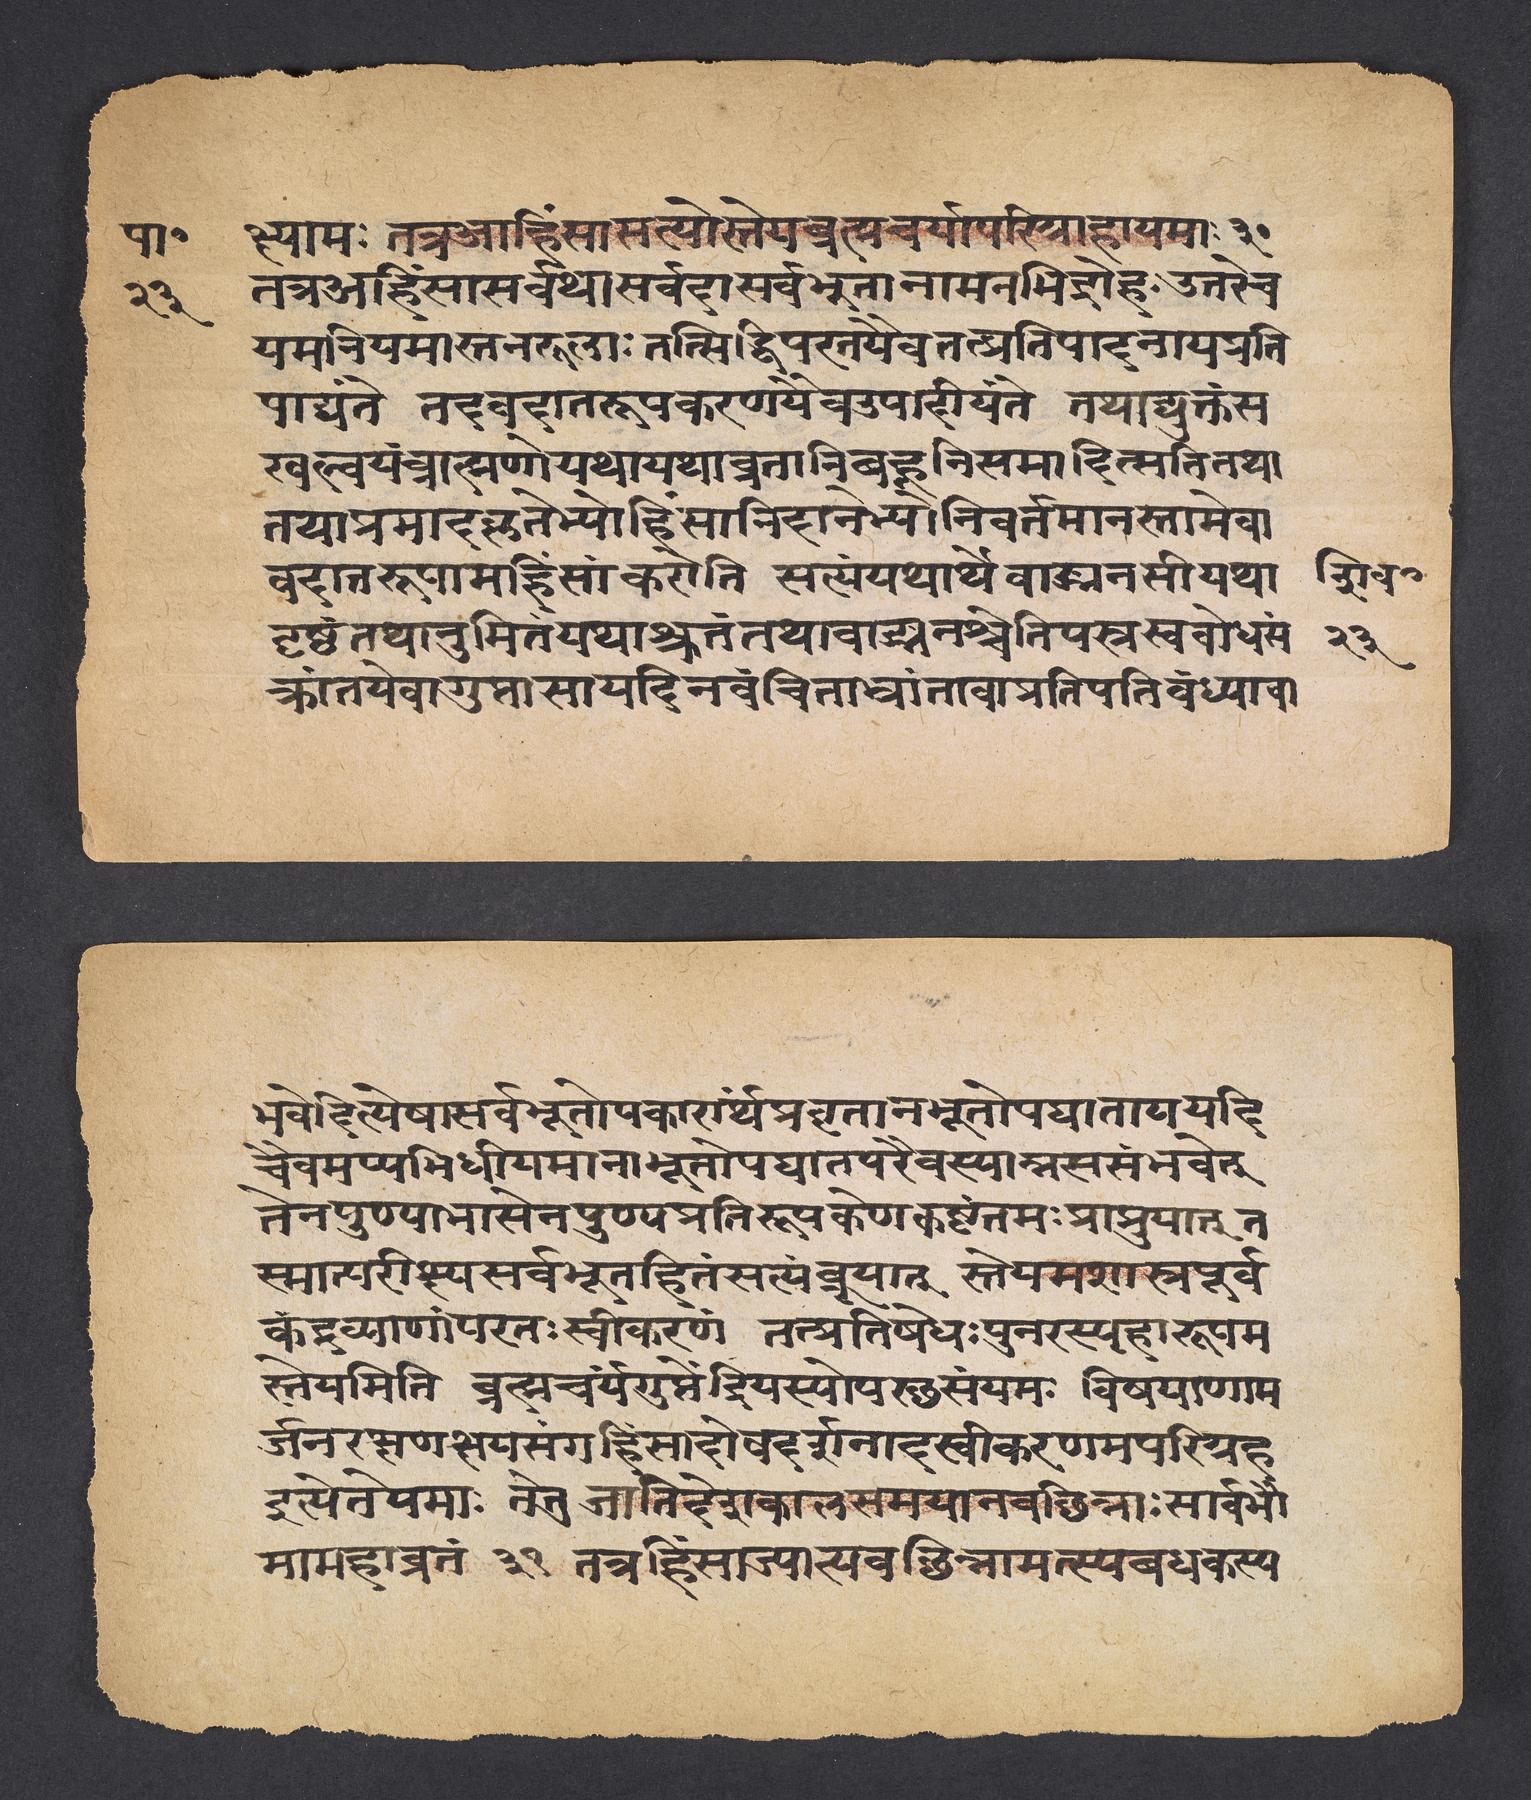 पा॰
२३
क्ष्यामः तत्रआहिंसासत्योस्तेयब्रह्मचर्यापरिग्राहायमाः ३०
तत्रअहिंसासर्वथासर्वदासर्वभुतानामनभिद्रोहः उत्तरेच
यमनियमास्तनमूलाः तत्सिद्धिपरतयैवतत्प्रतिपादनायप्रति
पाद्यंते तदवदातरूपकरणयैवउपादीयंते तथाह्युक्तंस
खल्वयंब्राह्मणोयथायथाव्रतानिबहूनिसमादित्सतितथा
तथाप्रमादकृतेभ्योहिंसानिदानेभ्योनिवर्तमानस्तामेवा
वदातरूपामहिंसांकरोति सत्यंयथार्थेवाङ्मनसीयथा
दृष्टंतथानुमितंयथाश्रुतंतथावाङ्मनश्चेतिपरत्रस्वबोधसं
क्रांतयेवागुप्तासायदिनवंचिताभ्रांतावाप्रतिपतिवंध्यावा
शिव॰
२३
भवेदित्येषासर्वभूतोपकारार्थंप्रवृतानभूतोपघातायायदि
चैवमप्यभिधीयमानाभूतोपघातपरैवस्यान्नससंभवेत्
तेनपुण्याभासेनपुण्यप्रतिरूपकेणकष्टंतमःप्राप्नुयात् त
स्मात्परीक्ष्यसर्वभूतहितंसत्यंब्रूयात् स्तेयमशास्त्रपूर्व
कंद्रव्याणांपरतःस्वीकरणं तत्प्रतिषेधःपुनरस्पृहारूपम
स्तेयमिति ब्रह्मचर्यंगुप्तेंद्रियस्योपस्थसंयमः विषयाणाम
र्जनरक्षणक्षयसंगहिंसादोषदर्शनादस्वीकरणमपरिग्रह
इत्येतेयमाः तेतु जातिदेशकालसमयानवछिन्नाःसार्वभौ
मामहाव्रतं ३१ तत्रहिंसाज्यात्यवछिन्नामत्स्यबधकस्य